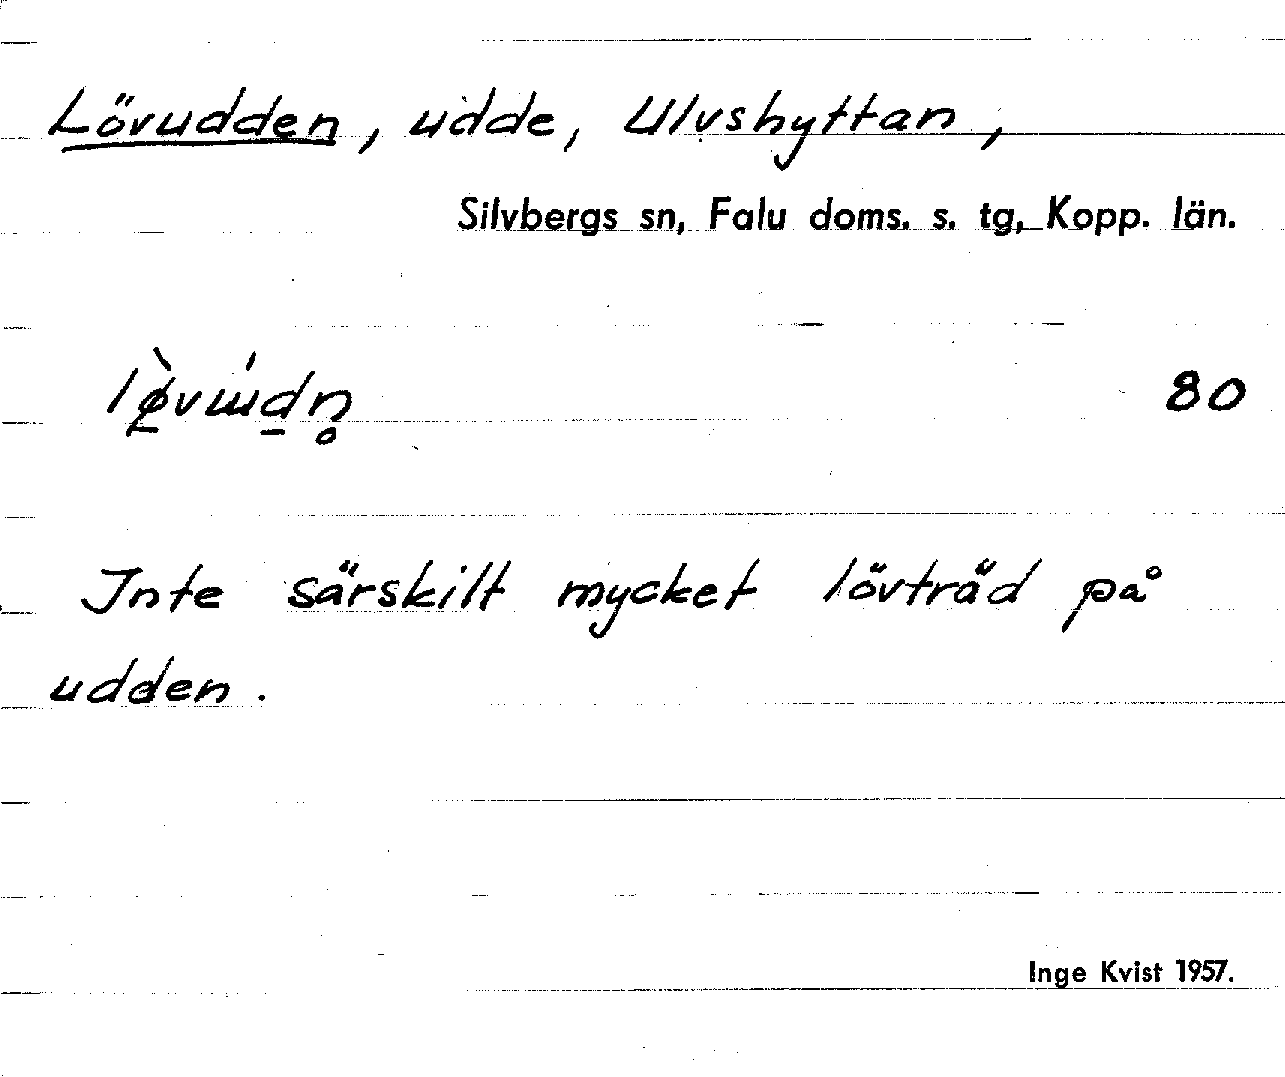 Lövudden, udde, Ulvshyttan,
Silvbergs sn, Falu doms. s. tg, Kopp. län.
80
Inte särskilt mycket lövträd på
udden.
Inge Kvist 1957.